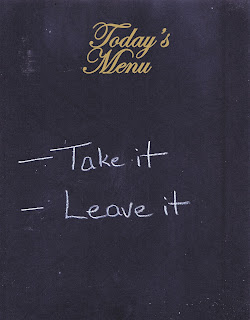 Today's
Menu
- Take it
- Leave it